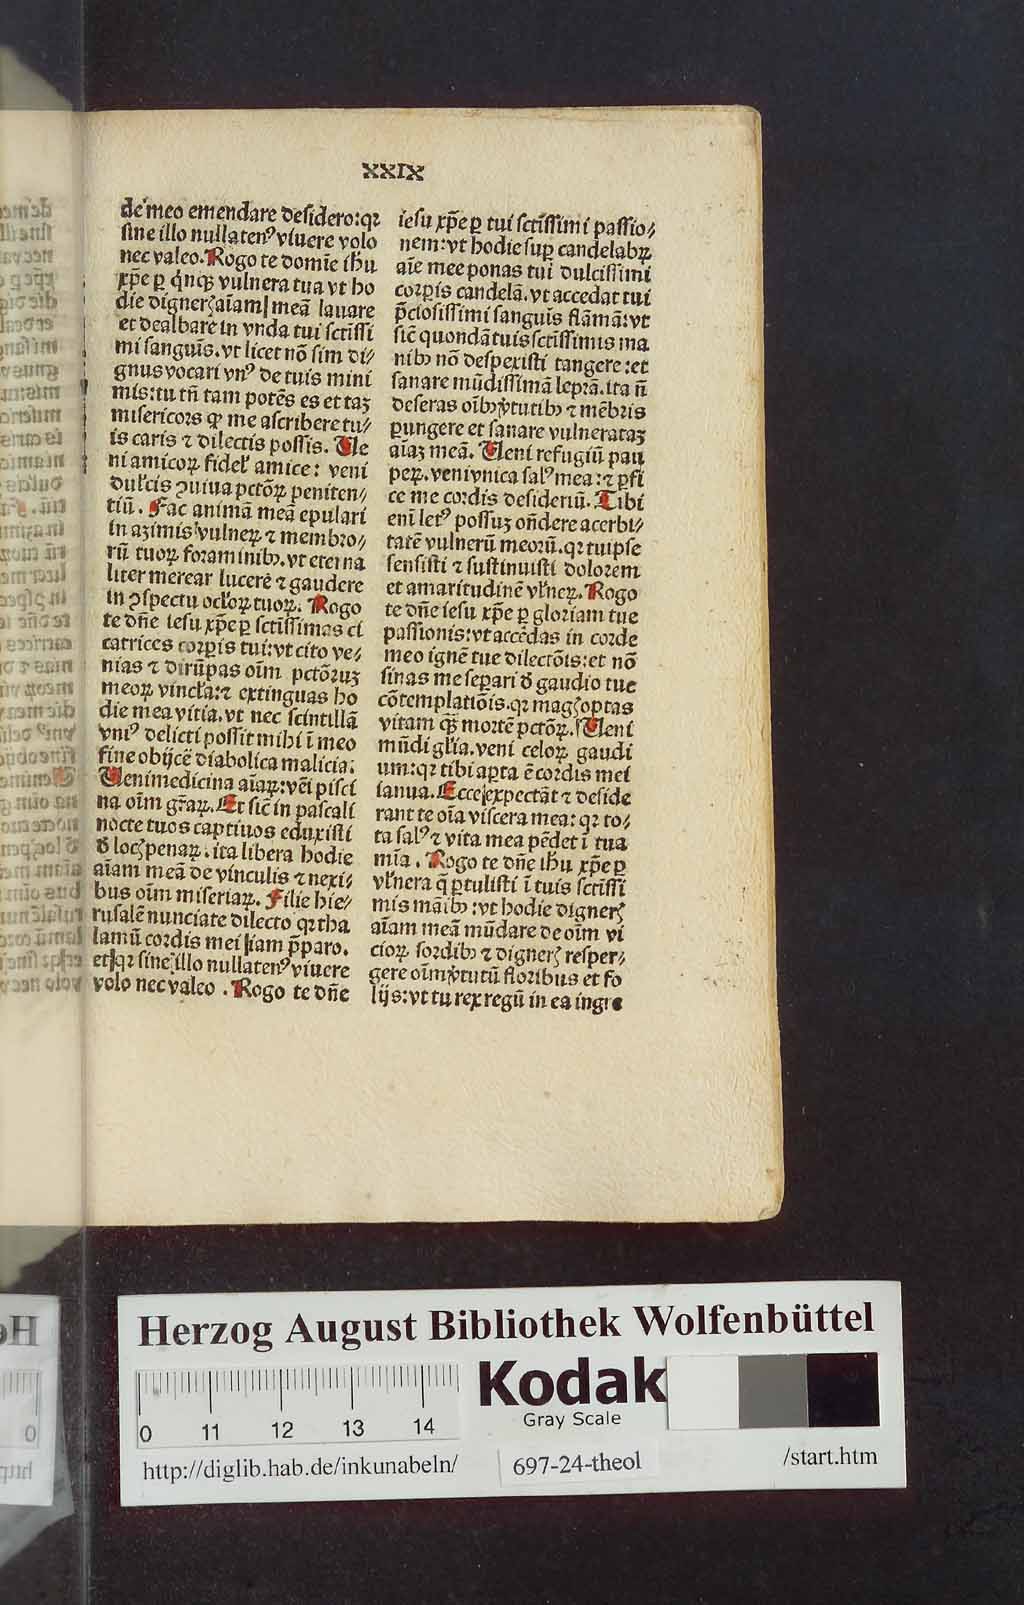 XXIX
de meo emendare desidero:qꝛ
sine illo nullatenꝰ viuere volo
nec valeo. Rogo te domīe ihū
xp̄e ꝑ q̇nqꝫ vulnera tua vt ho
die digneꝝ aīam meā lauare
et dealbare in vnda tui sctīssi
mi sanguīs. vt licet nō sim di⸗
gnus vocari vnꝰ de tuis mini
mis: tu tn̄ tam potēs es et taꝫ
misericors ꝙ me ascribere tu⸗
is caris ⁊ dilectis possis. Ue
ni amicoꝝ fidel̛ amice: veni
dulcis ꝯuiua pctōꝝ peniten⸗
tiū. Fac animā meā epulari
in azimis vulneꝝ ⁊ membro⸗
rū tuoꝝ foraminibꝫ. vt eterna
liter merear lucere ⁊ gaudere
in ꝯspectu ocl̛oꝝ tuoꝝ. Rogo
te dn̄e iesu xp̄e ꝑ sctīssimas ci
catrices corꝑis tui: vt cito ve⸗
nias ⁊ dirūpas oīm pctōruꝫ
meoꝝ vincl̛a: ⁊ extinguas ho
die mea vitia. vt nec scintillā
vniꝰ delicti possit mihi ī meo
fine obijcē diabolica malicia.
Ueni medicina aīaꝝ: vēi pisci
na oīm gr̄aꝝ. Et sic̄ in pascali
nocte tuos captiuos eduxisti
ꝺ̄ locꝭ penaꝝ. ita libera hodie
aīam meā de vinculis ⁊ nexi⸗
bus oīm miseriaꝝ. Filie hie⸗
rusalē nunciate dilecto qꝛ tha
lamū cordis mei iam p̄paro.
et qꝛ sine illo nullatenꝰ viuere
volo nec valeo. Rogo te dn̄e
iesu xp̄e ꝑ tui sctīssimi passio⸗
nem: vt hodie suꝑ candelabꝝ
aīe mee ponas tui dulcissimi
corꝑis candelā. vt accedat tui
p̄ciosissimi sanguīs flāmā: vt
sic̄ quondā tuis sctīssimis ma
nibꝫ nō despexisti tangere: et
sanare mūdissimā leprā. ita n̄
deseras oībꝫ v̓tutibꝫ ⁊ mēbris
ꝑungere et sanare vulnerataꝫ
aīaꝫ meā. Ueni refugiū pau
peꝝ. veni vnica salꝰ mea: ⁊ ꝑfi
ce me cordis desideriū. Tibi
enī letꝰ possuꝫ on̄dere acerbi⸗
tatē vulnerū meorū. qꝛ tu ipse
sensisti ⁊ sustinuisti dolorem
et amaritudinē vl̛neꝝ. Rogo
te dn̄e iesu xp̄e ꝑ gloriam tue
passionis: vt accēdas in corde
meo ignē tue dilectōis: et nō
sinas me seꝑari ꝺ̄ gaudio tue
cōtemplatiōis. qꝛ magꝭ optas
vitam qꝫ̄ mortē pctōꝝ. Ueni
mūdi gl̛ia. veni celoꝝ gaudi
um: qꝛ tibi aꝑta ē cordis mei
ianua. Ecce expectāt ⁊ deside
rant te oīa viscera mea: qꝛ to⸗
ta salꝰ ⁊ vita mea pēdet ī tua
mīa. Rogo te dn̄e ihū xp̄e ꝑ
vl̛nera q̄ ꝑtulisti ī tuis sctīssi
mis māibꝫ: vt hodie digneꝝ
aīam meā mūdare de oīm vi
cioꝝ sordibꝫ ⁊ digneꝝ resper⸗
gere oīm v̓tutū floribus et fo
lijs: vt tu rex regū in ea ingre
Herzog August Bibliothek Wolfenbüttel
Kodak
Gray Scale
0 11 12 13 14
http://diglib.hab.de/inkunabeln/ 697-24-theol /start.htm